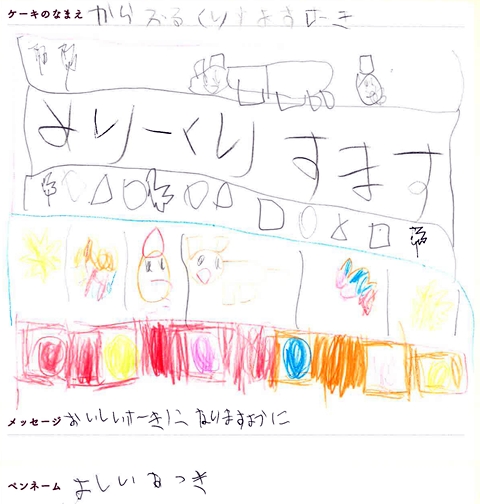 ケーキのなまえ からふるくりすますけーき
めりーくりすます
メッセージ おいしいけーきになりますように
ペンネーム よしいなつき